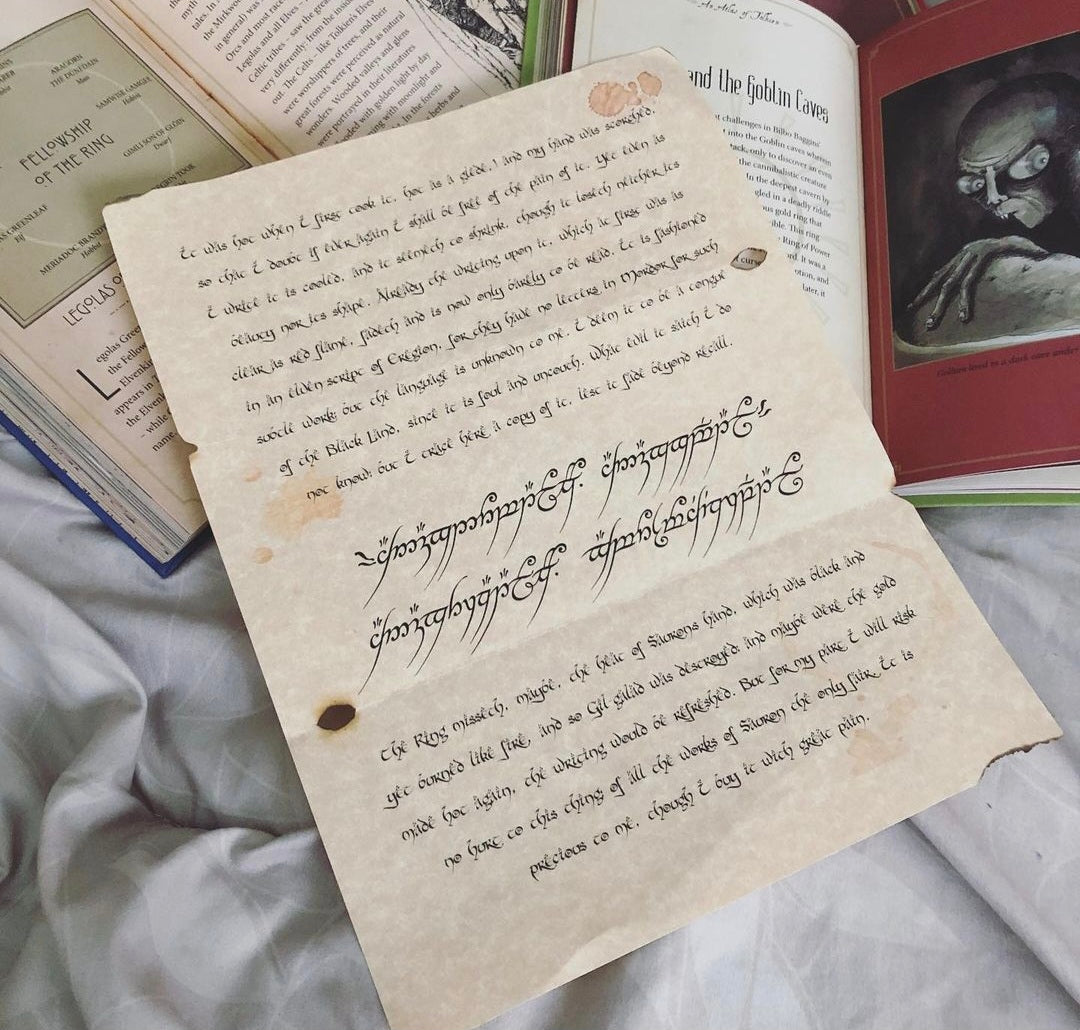 FELLOWSHIP
OF THE RING
ARAGORN
THE DUNEDAIN
Man
SAMWISE GAMGEE
Hobbit
GIMLI SON OF GLOIN
Dwarf
MERIADOC
LEGOLAS
egolas Gree
the Fellow
Elvenki
appears in T
the Elvenk
– while
name.
in general) was
Orcs and most race
Legolas and all Elves
Celtic tribes – save the great
very differently: from the most
out. The Celts – like Tolkien's Elves
were whisperers of trees, and their
great forests were perceived as natural
were portrayed in their literature
wonders. Wooded valleys and glens
with golden light by day
with moonlight and
In the forests
herbs and
An Atlas of Tolkien
and the Goblin Caves
challenges in Bilbo Baggins'
into the Goblin caves wherein
tack, only to discover an even
the cannibalistic creature
In the deepest cavern by
gled in a deadly riddle
ous gold ring that
ible. This ring
Ring of Power
ord. It was a
otion, and
later, it
a curse
Gollum lived in a dark cave under
It was hot when I first took it, hot as a glede,! and my hand was scorched,
so that I doubt if ever again I shall be free of the pain of it. Yet even as
I write it is cooled, and it seemeth to shrink, though it loseth neither its
beauty nor its shape. Already the writing upon it, which at first was as
clear as red flame, fadeth and is now only barely to be read. It is fashioned
in an elven script of Eregion, for they have no letters in Mordor for such
subtle work; but the language is unknown to me. I deem it to be a tongue
of the Black Land, since it is foul and uncouth. What evil it saith I do
not know; but I trace here a copy of it, lest it fade beyond recall.
The Ring misseth, maybe, the heat of Saurons hand, which was black and
yet burned like fire, and so Gil galad was destroyed; and maybe were the gold
made hot again, the writing would be refreshed. But for my part I will risk
no hurt to this thing; of all the works of Sauron the only fair. It is
precious to me, though I buy it with great pain.